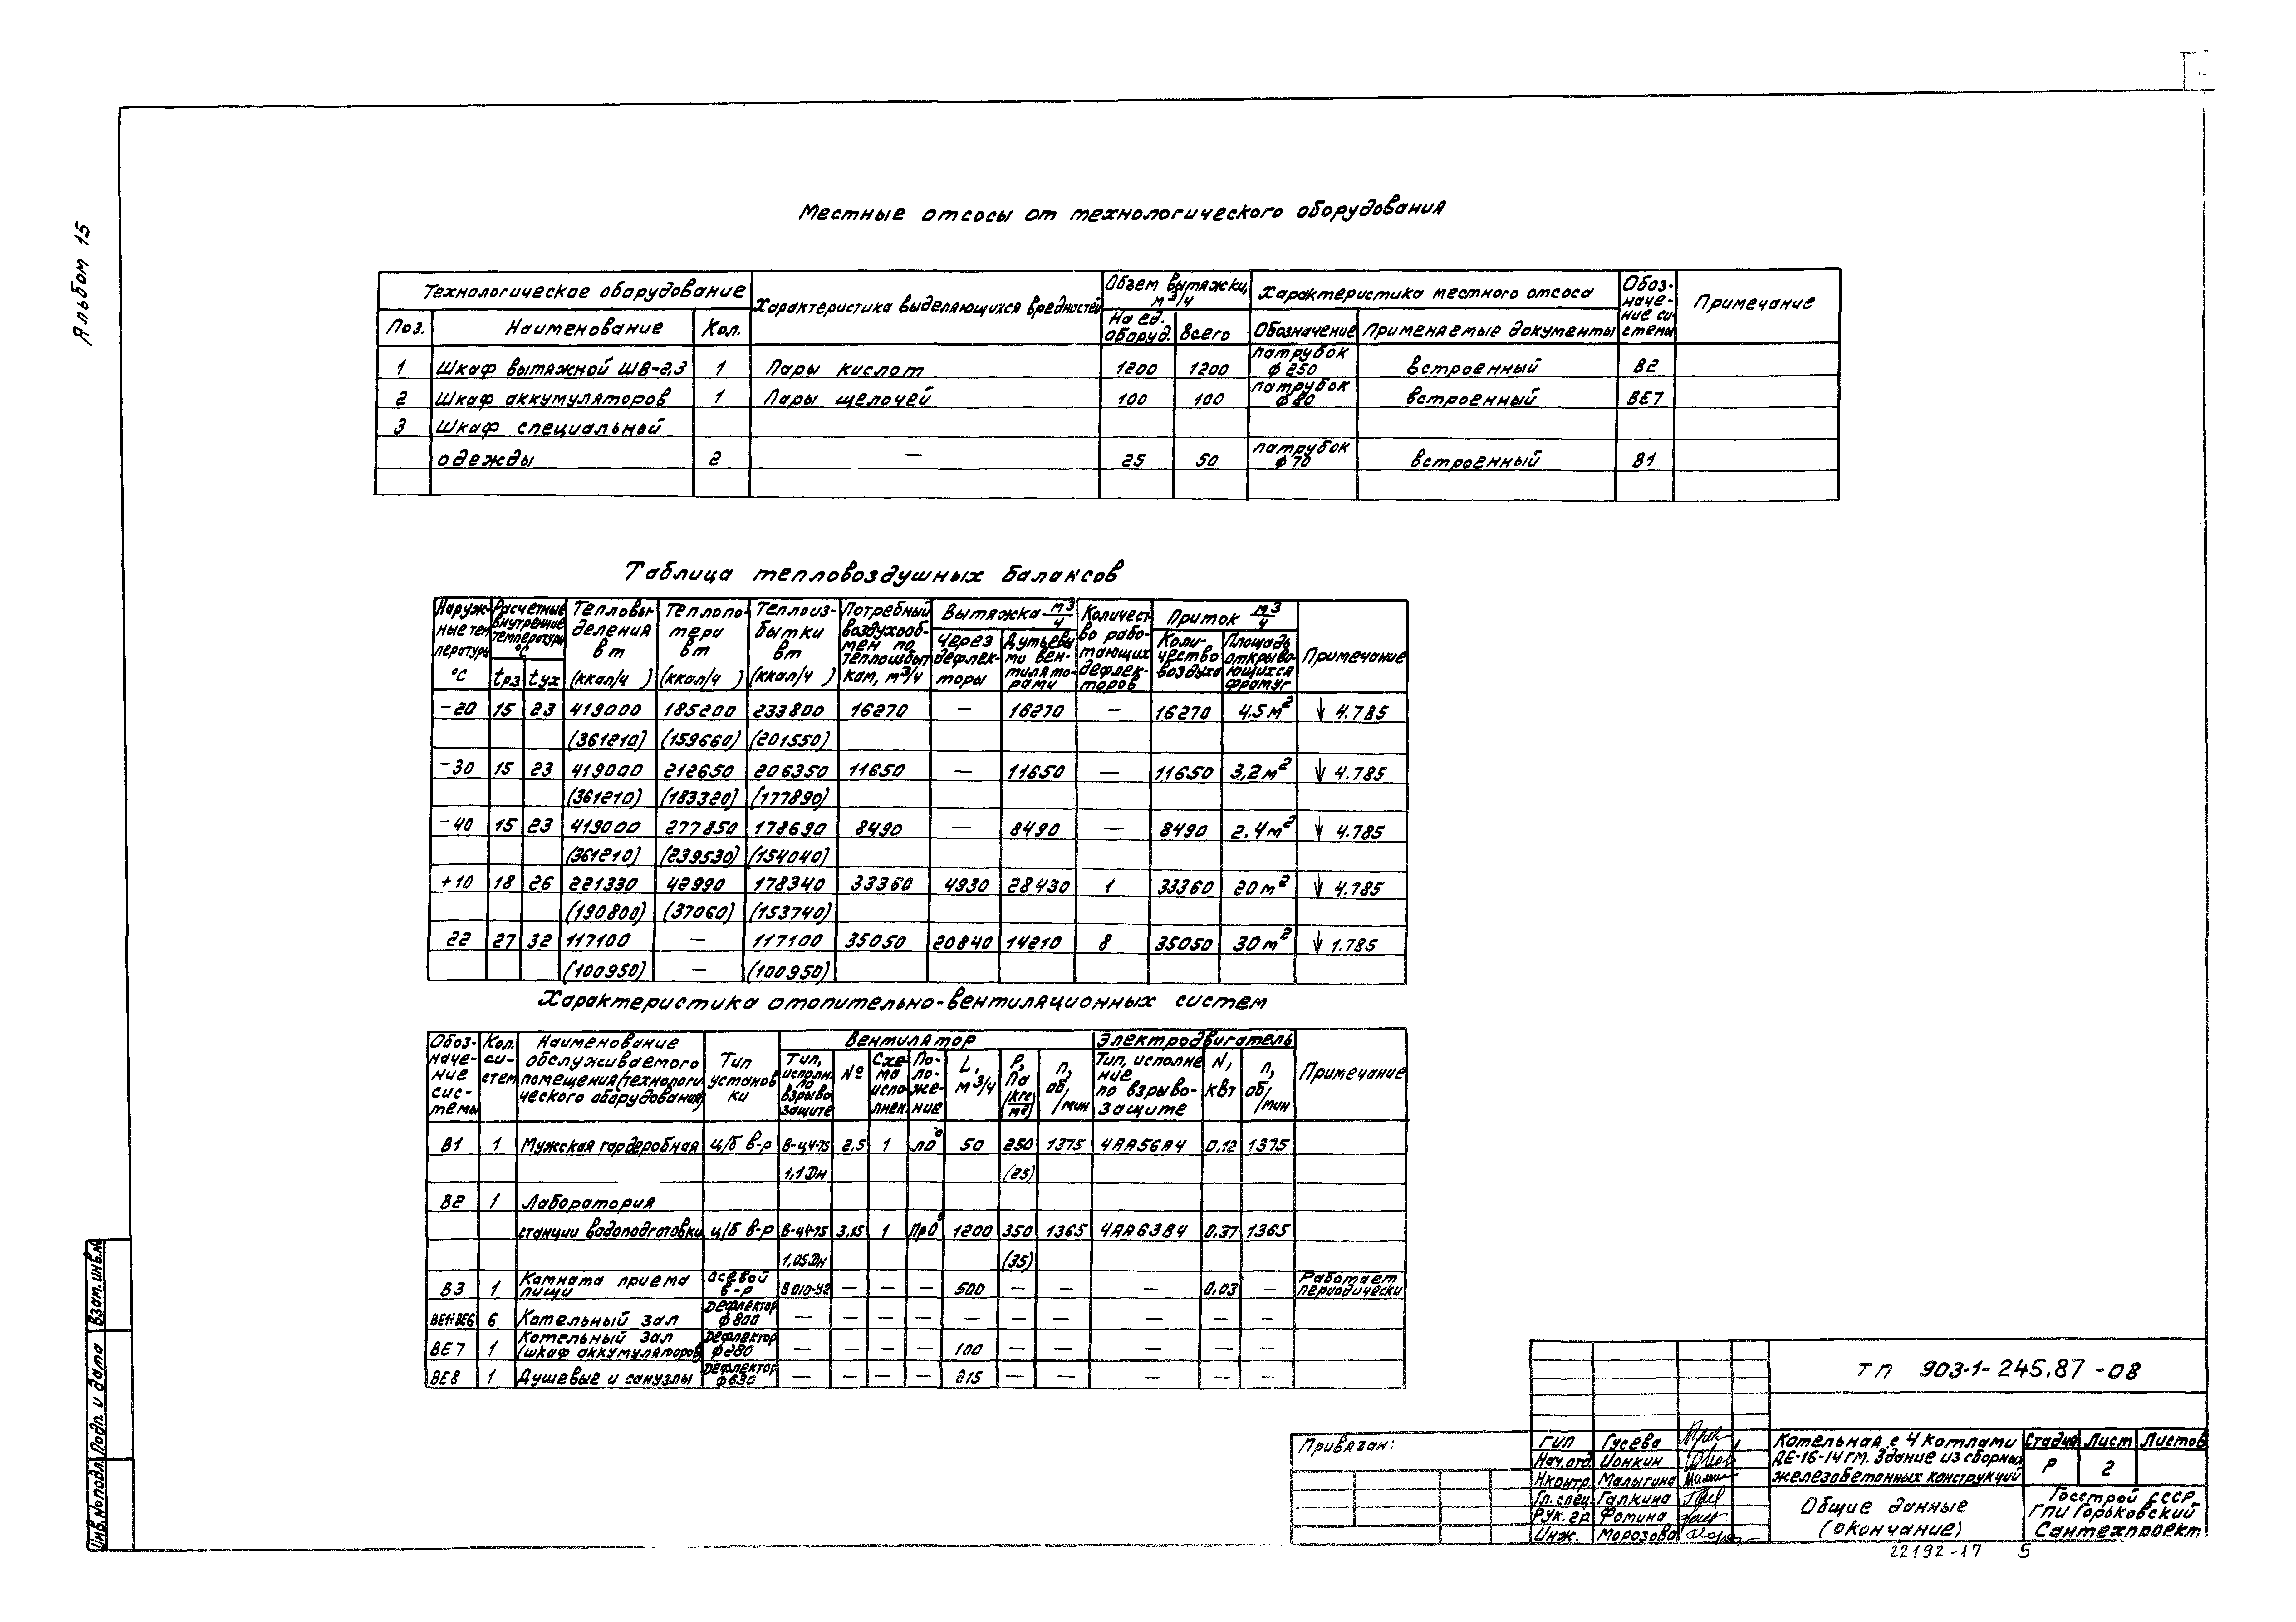 Альбом 15
Местные отсосы от технологического оборудования
Технологическое оборудование | Характеристика выделяющихся вредностей | Объем вытяжки, м³/ч | Характеристика местного отсоса | Обозначение системы | Примечание
Поз. | Наименование | Кол. | На ед. оборуд. | всего | Обозначение | Применяемые документы
1 | Шкаф вытяжной ШВ-2,3 | 1 | Пары кислот | 1200 | 1200 | патрубок ф 250 | встроенный | В2
2 | Шкаф аккумуляторов | 1 | Пары щелочей | 100 | 100 | патрубок ф 80 | встроенный | ВЕ7
3 | Шкаф специальной
одежды | 2 | — | 25 | 50 | патрубок ф 70 | встроенный | В1
Таблица тепловоздушных балансов
Наружные температуры °С | Расчетные внутренние температуры °С | Тепловыделения вт (ккал/ч) | Теплопотери вт (ккал/ч) | Теплоизбытки вт (ккал/ч) | Потребный воздухообмен по теплоизбыткам, м³/ч | Вытяжка м³/ч | Количество работающих дефлекторов | Приток м³/ч | Примечание
tрз | tух | через дефлекторы | Дутьевыми вентиляторами | Количество воздуха | Площадь открывающихся фрамуг
-20 | 15 | 23 | 419000 | 185200 | 233800 | 16270 | — | 16270 | — | 16270 | 4.5 м² | ↓ 4.785
(361210) | (159660) | (201550)
-30 | 15 | 23 | 419000 | 212650 | 206350 | 11650 | — | 11650 | — | 11650 | 3,2 м² | ↓ 4.785
(361210) | (183320) | (177890)
-40 | 15 | 23 | 419000 | 277850 | 178690 | 8490 | — | 8490 | — | 8490 | 2.4 м² | ↓ 4.785
(361210) | (239530) | (154040)
+10 | 18 | 26 | 221330 | 42990 | 178340 | 33360 | 4930 | 28430 | 1 | 33360 | 20 м² | ↓ 4.785
(190800) | (37060) | (153740)
22 | 27 | 32 | 117100 | — | 117100 | 35050 | 20840 | 14210 | 8 | 35050 | 30 м² | ↓ 1.785
(100950) | — | (100950)
Характеристика отопительно-вентиляционных систем
Обозначение системы | Кол. систем | Наименование обслуживаемого помещения (технологического оборудования) | Тип установки | Вентилятор | Электродвигатель | Примечание
Тип, исполн. по взрывозащите | № | Схема исполнен. | Положение | L, м³/ч | P, Па (кгс/м²) | п, об/мин | Тип, исполнение по взрывозащите | N, квт | п, об/мин
В1 | 1 | Мужская гардеробная | ц/б в-р | В-Ц4-75 | 2,5 | 1 | ЛО° | 50 | 250 | 1375 | 4АА56А4 | 0,12 | 1375
1,1Дн | (25)
В2 | 1 | Лаборатория
станции водоподготовки | ц/б в-р | В-Ц4-75 | 3,15 | 1 | ПрО° | 1200 | 350 | 1365 | 4АА63В4 | 0.37 | 1365
1,05Дн | (35)
В3 | 1 | Комната приема пищи | Осевой в-р | — | — | — | 500 | — | — | — | 0.03 | — | Работает периодически
ВЕ1÷ВЕ6 | 6 | Котельный зал | Дефлектор ф800 | — | — | — | — | — | — | — | — | — | —
ВЕ7 | 1 | Котельный зал (шкаф аккумуляторов) | Дефлектор ф280 | — | — | — | — | 100 | — | — | — | — | —
ВЕ8 | 1 | Душевые и санузлы | Дефлектор ф630 | — | — | — | — | 215 | — | — | — | — | —
Взам. инв.№
Подп. и дата
Инв.№ подл.
Привязан:
ТП 903-1-245.87 -08
ГИП Гусева
Нач.отд. Ионкин
Н.контр. Малыгина
Гл. спец. Галкина
Рук. гр. Фомина
Инж. Морозова
Котельная с 4 котлами ДЕ-16-14ГМ. Здание из сборных железобетонных конструкций
Стадия | Лист | Листов
Р | 2
Общие данные (окончание)
Госстрой СССР
ГПИ Горьковский
Сантехпроект
22192-17 5